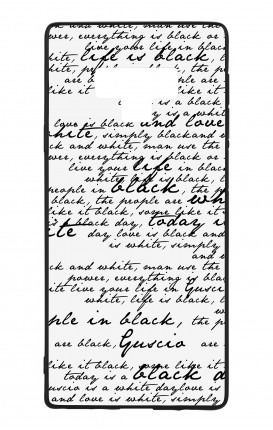 and white, man use the
wer, everything is black or
live your life in black
hite, life is black, l
hite, p the p
are like it
like it
is a black
y is a white
love is black and love
hite, simply black and w
ck and white, man use the
wer, everything is black or
live your life in black
white is black,
people in black, the p
black, the people are wh
like it black, some like it i
is black day, today i
ite day love is black and
is white, simply
and w
ck and white, man use the
power, everything is bla
ite live your life in Gusci
white, life is black, l
ple in black, the p
are black, Guscio are
like it black, some like it
today is a black d
uscio is a white day love is
and love is white, simply